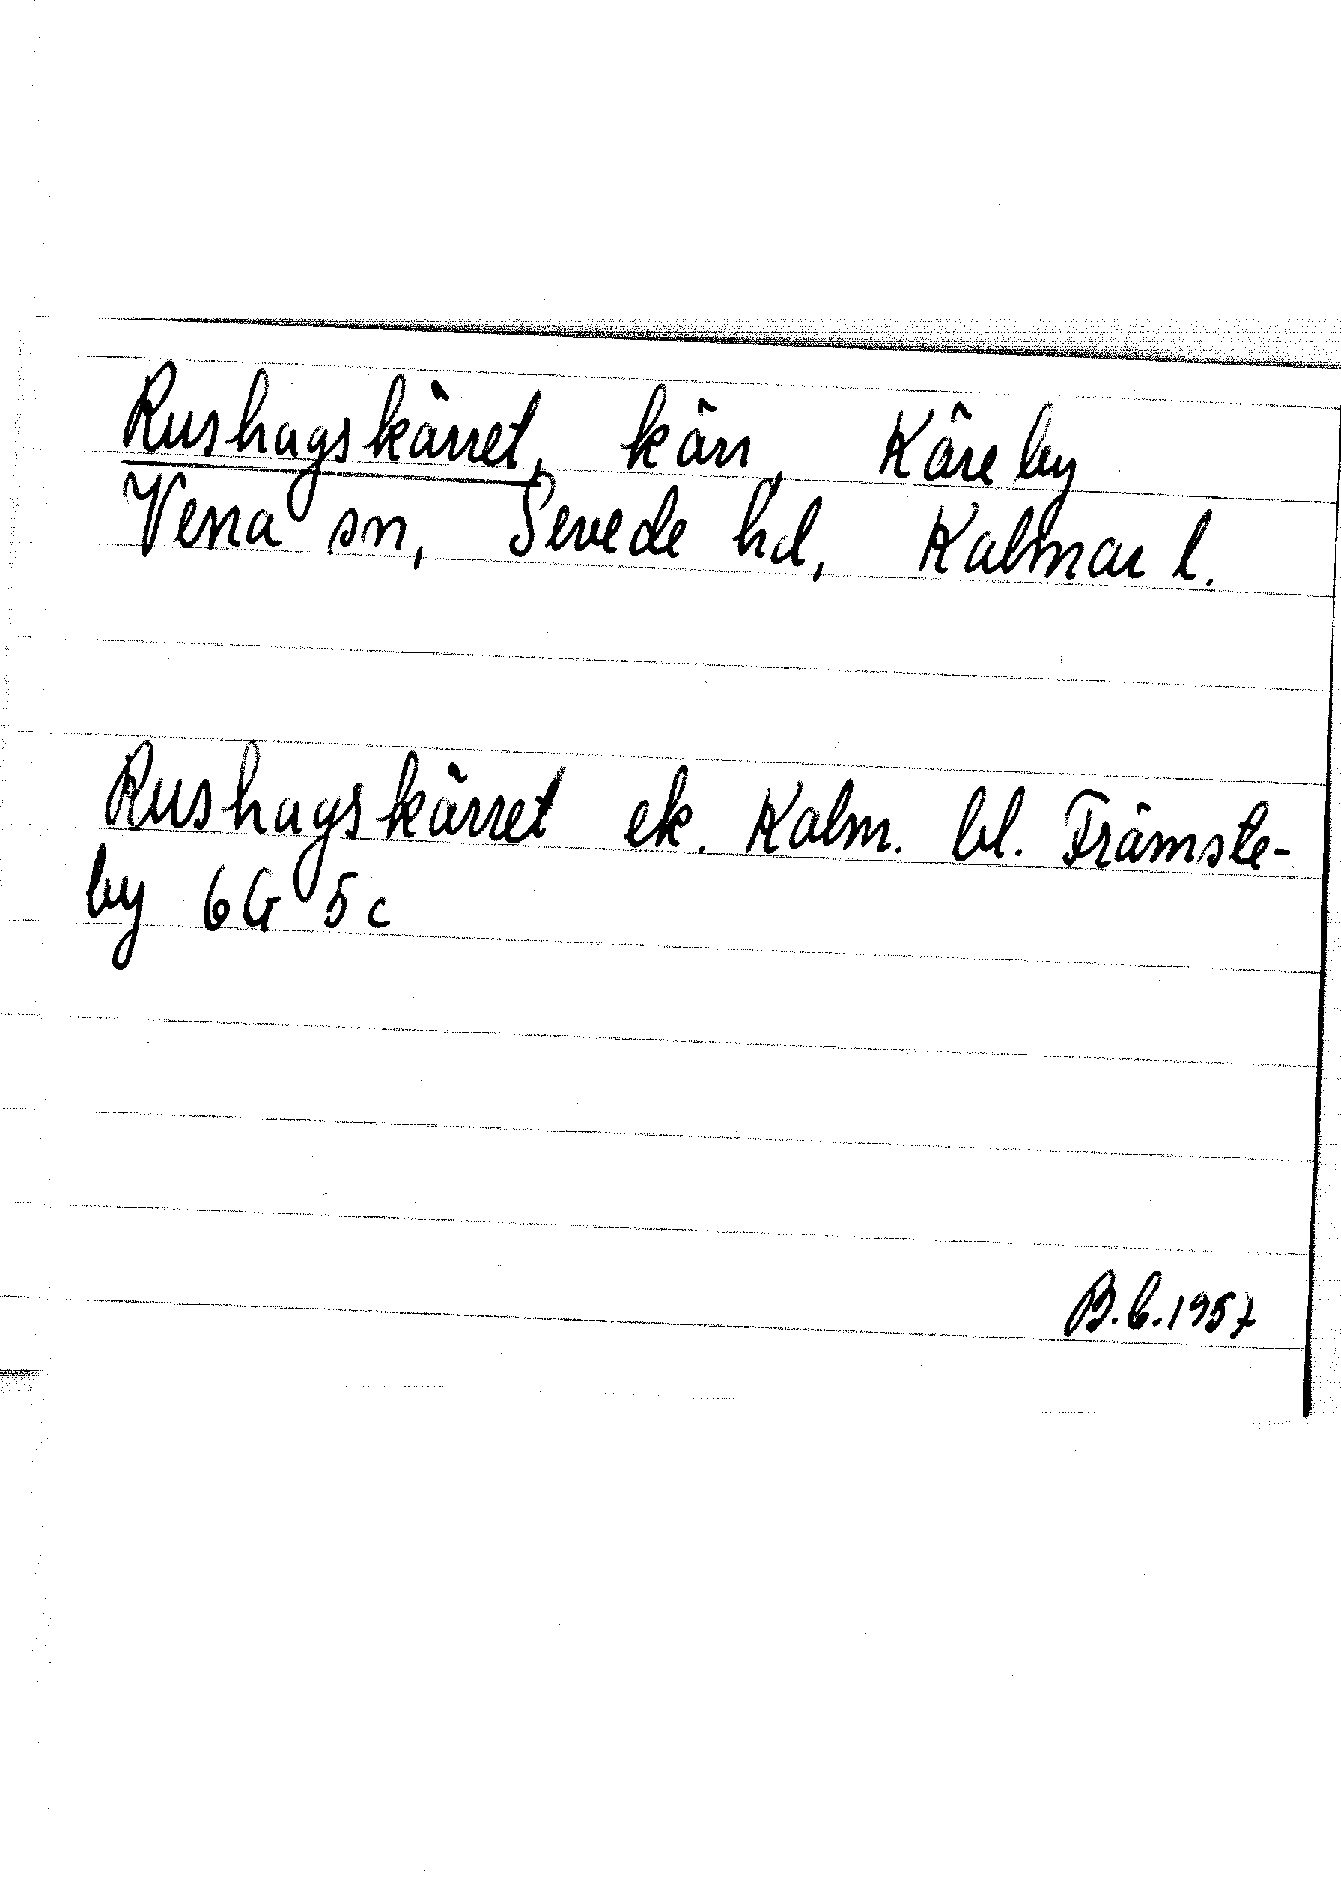 Rushagskärret, kärr, Käreby
Vena sn, Sevede hd, Kalmar l.
Rushagskärret ek. Kalm. bl. Främste-
by 6G 5c
B.6.1957